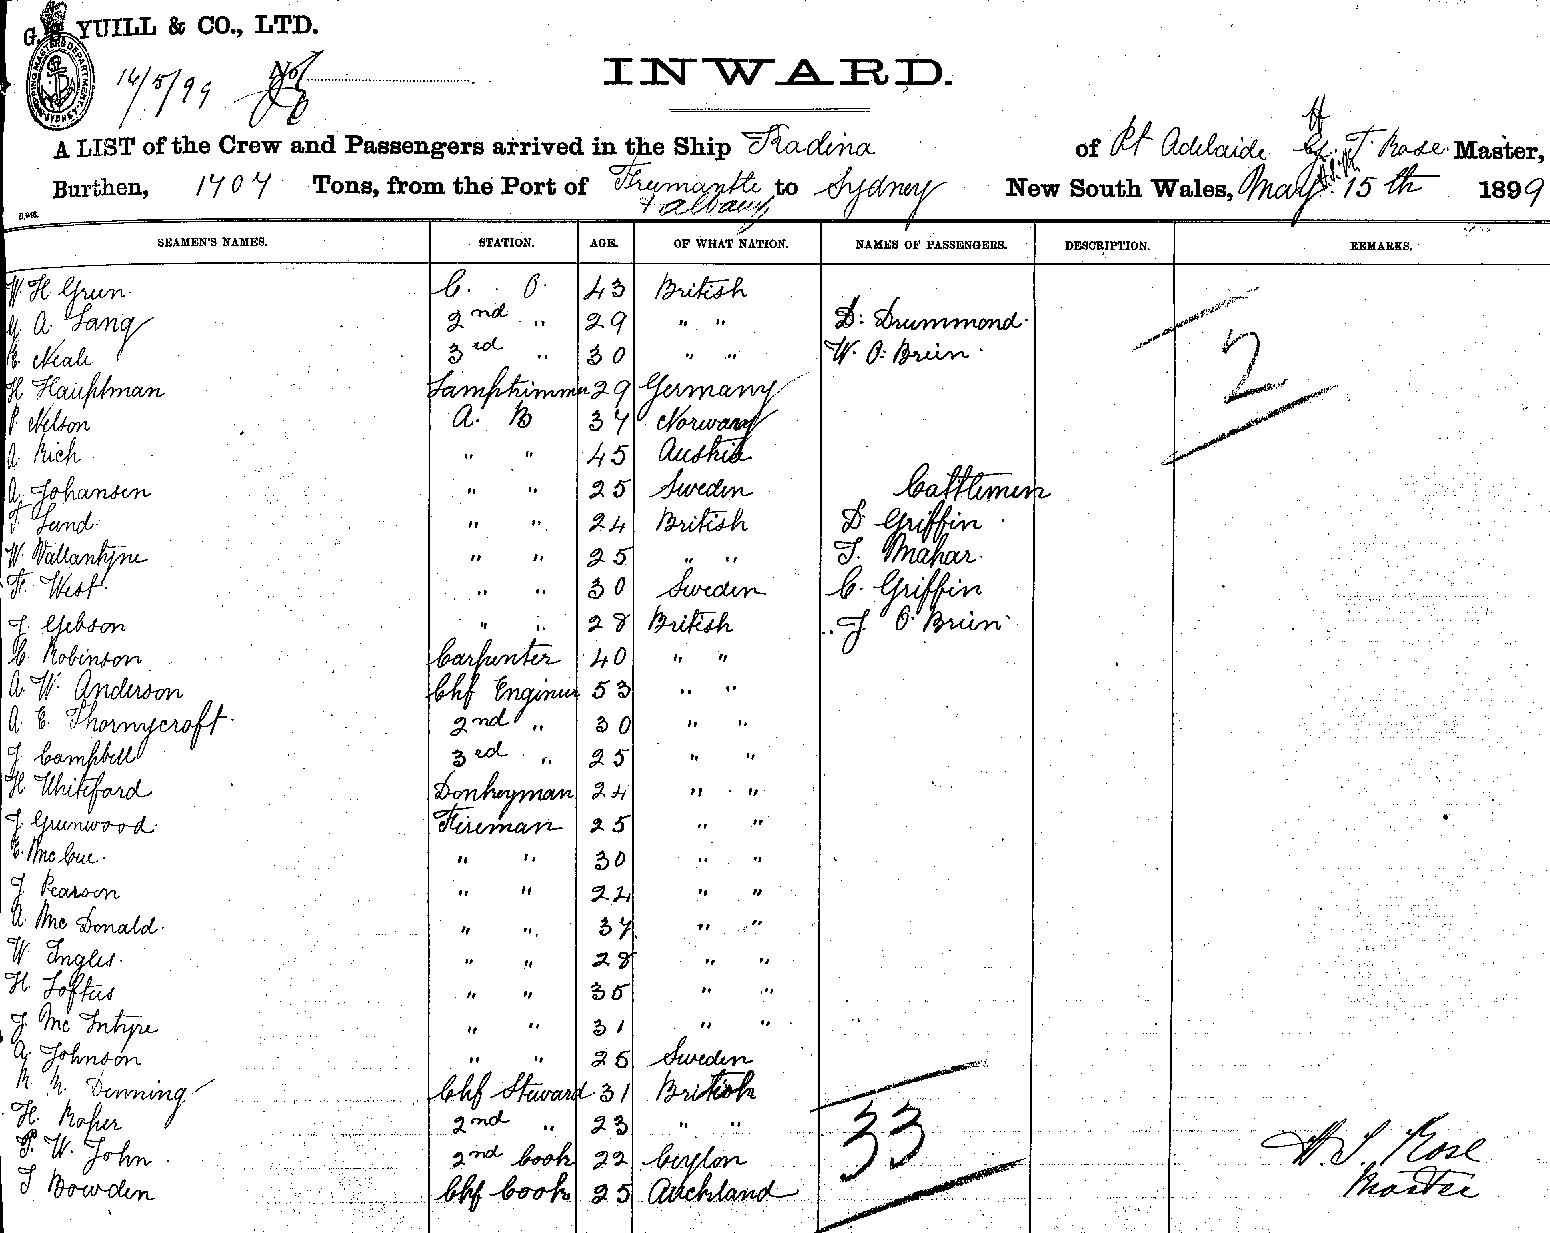 G. YUILL & CO., LTD.
16/5/99
INWARD.
A LIST of the Crew and Passengers arrived in the Ship Kadina of Pt Adelaide T. Rose Master,
Burthen, 1707 Tons, from the Port of Fremantle & Albany to Sydney New South Wales, May 15th 1899
SEAMEN'S NAMES. STATION. AGE. OF WHAT NATION. NAMES OF PASSENGERS. DESCRIPTION. REMARKS.
W H Green C. O. 43 British
A Lang 2nd " 29 " " D. Drummond
Neale 3rd " 30 " " W. O. Brien 2
H Hauptman Lamptrimmer 29 Germany
P Nelson A. B 37 Norway
A Rich " " 45 Austria
A Johansen " " 25 Sweden Cattlemen
T Lund " " 24 British D Griffin
W Vallantyne " " 25 " " T. Mahar
F. West " " 30 Sweden C. Griffin
J Gibson " " 28 British J O. Brien
C Robinson Carpenter 40 " "
A W. Anderson Chf Engineer 53 " "
A E Thornycroft 2nd " 30 " "
J Campbell 3rd " 25 " "
H Whiteford Donkeyman 24 " "
J Greenwood Fireman 25 " "
E McCue " " 30 " "
J Pearson " " 22 " "
A McDonald " " 37 " "
W Ingles " " 28 " "
H Loftus " " 35 " "
J McIntyre " " 31 " "
A Johnson " " 25 Sweden
Denning Chf Steward 31 British
H. Roper 2nd " 23 " " 33
W. John 2nd Cook 22 Ceylon H. T. Rose
T Bowden Chf Cook 25 Auckland Master